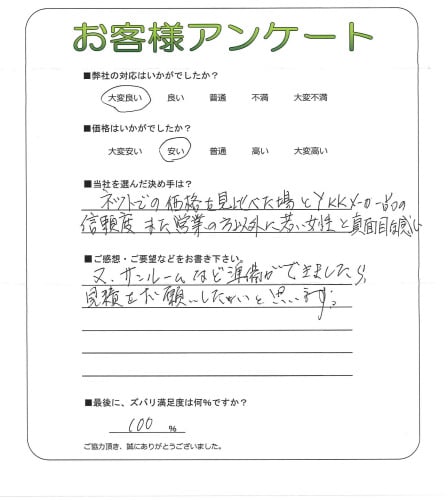 お客様アンケート
■弊社の対応はいかがでしたか？
大変良い 良い 普通 不満 大変不満
■価格はいかがでしたか？
大変安い 安い 普通 高い 大変高い
■当社を選んだ決め手は？
ネットでの価格を見比べた場とYKKメーカー品の
信頼度 また営業の方以外に若い女性と真面目な感じ
■ご感想・ご要望などをお書き下さい。
又、サンルームなど準備ができましたら、
見積をお願いしたいと思います。
■最後に、ズバリ満足度は何%ですか？
100 %
ご協力頂き、誠にありがとうございました。